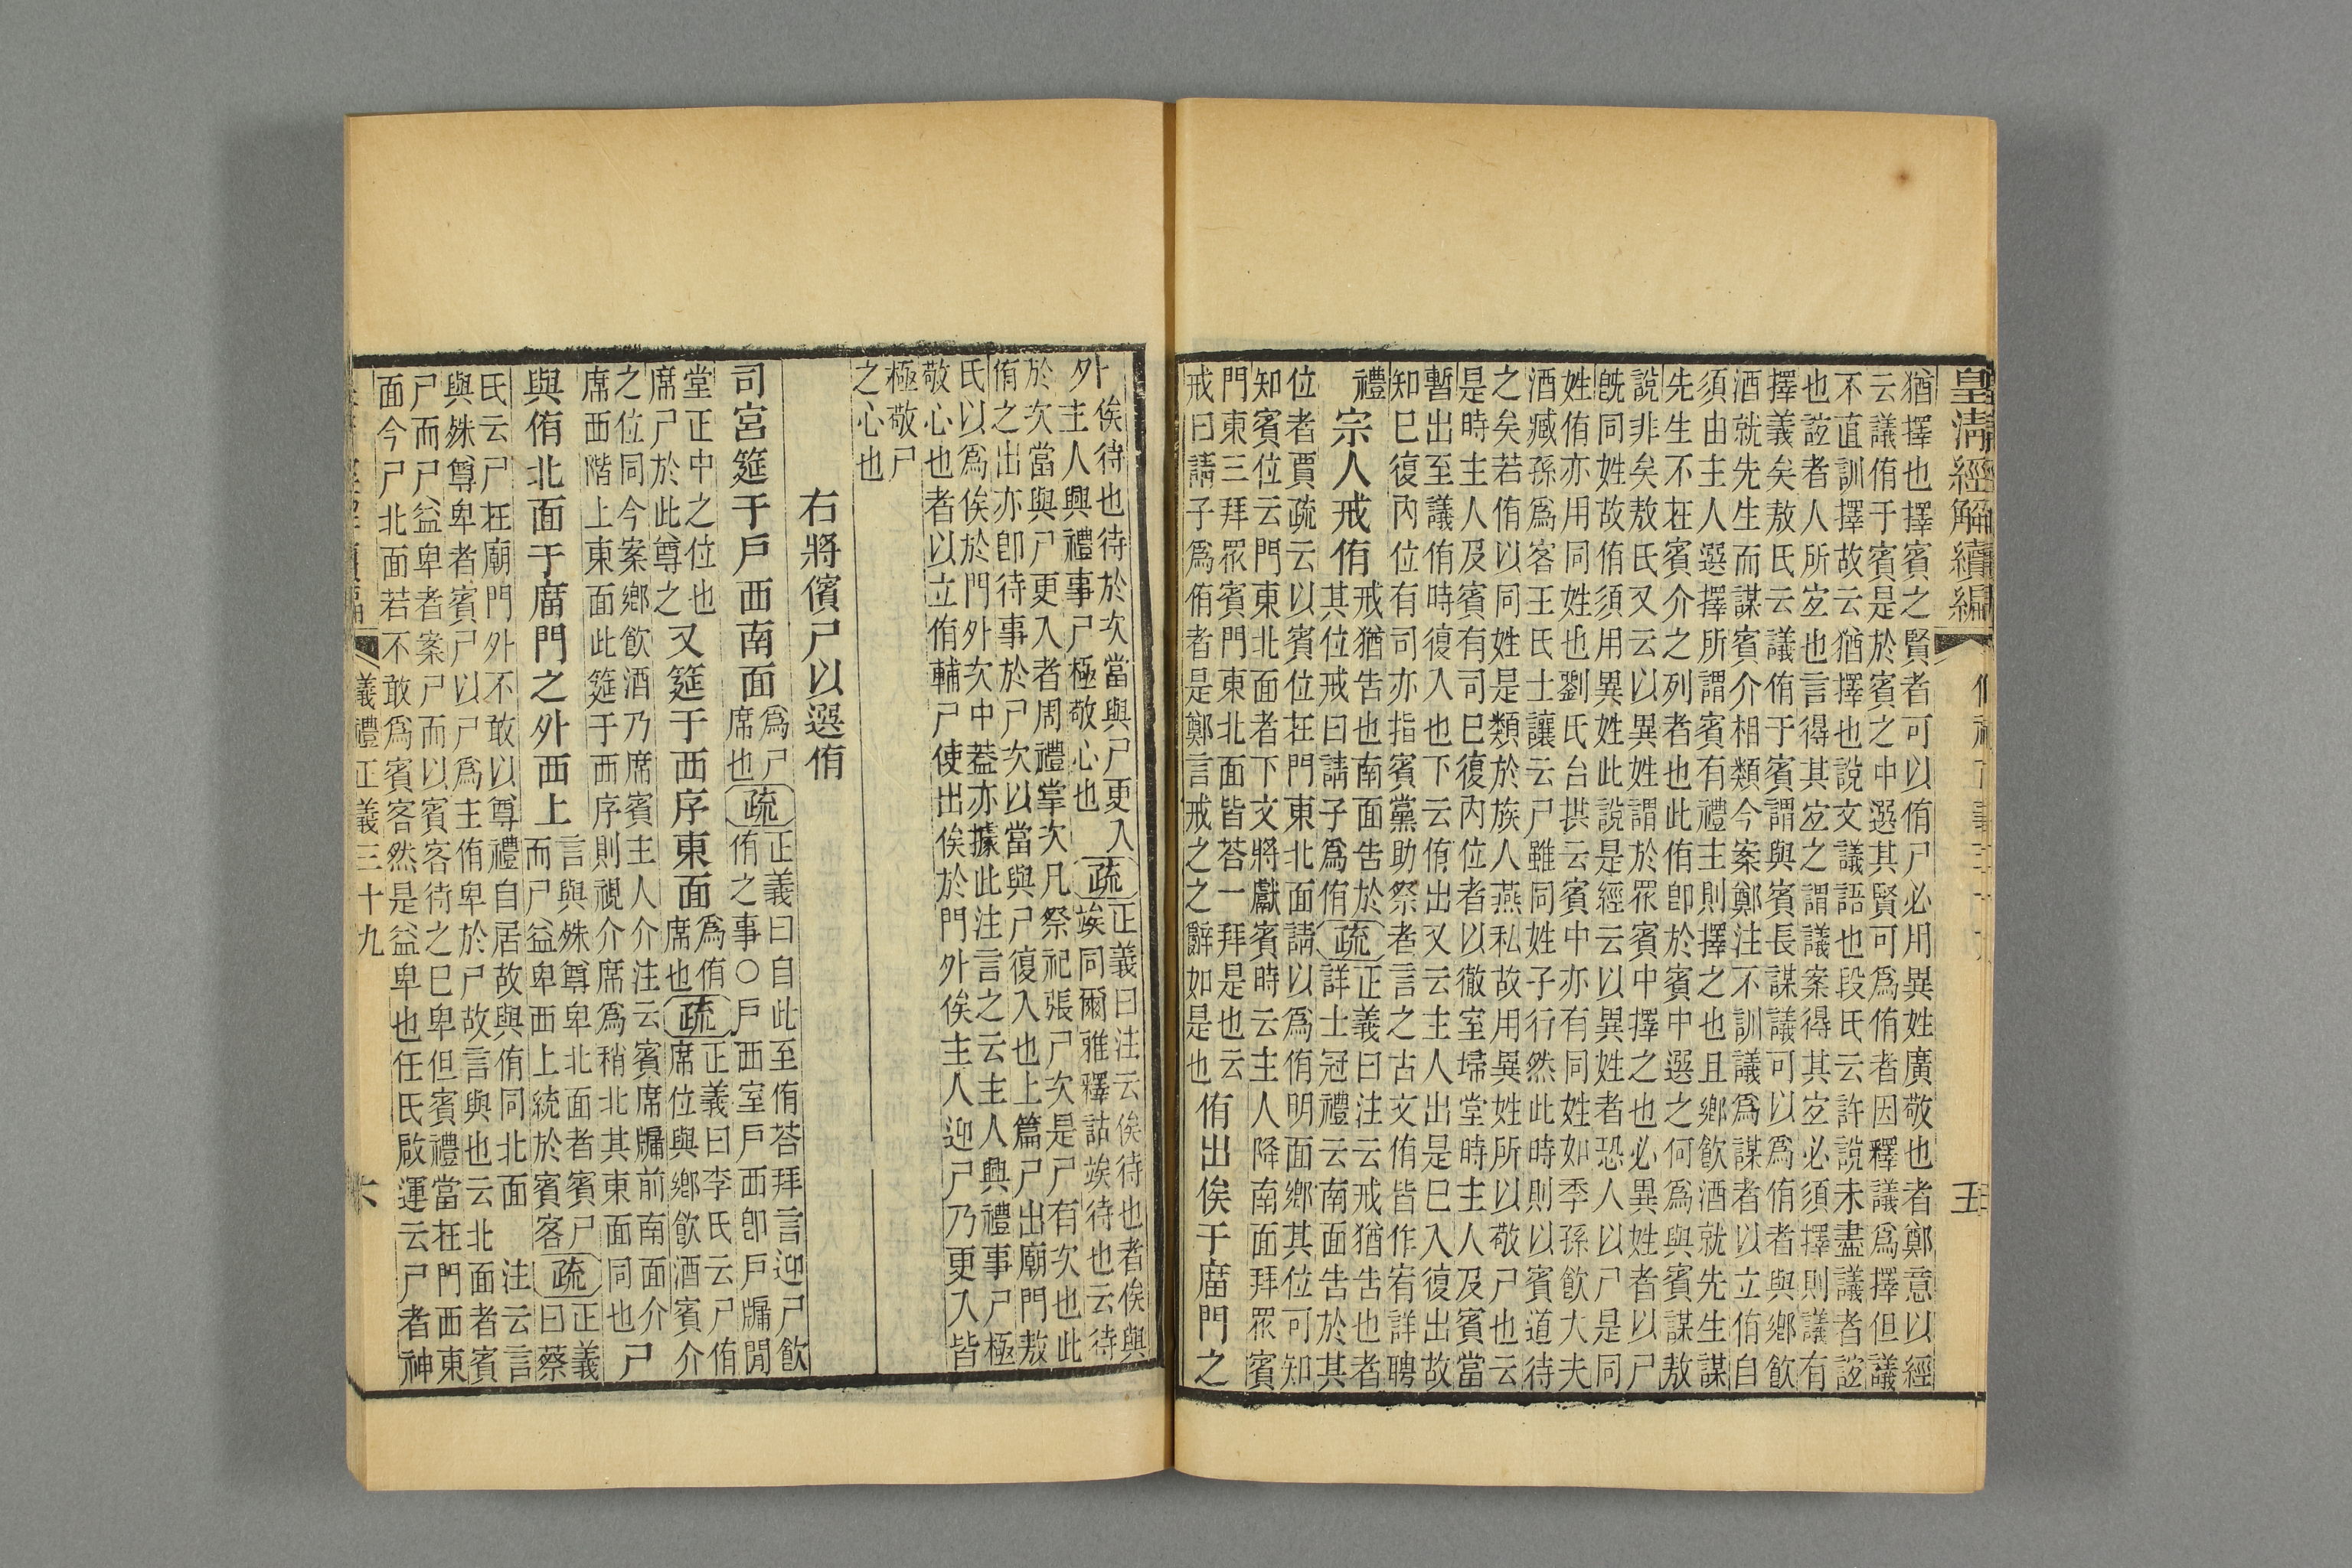 皇淸經解續編
猶擇也擇賓之賢者可以侑尸必用異姓廣敬也者鄭意以經
云議侑于賓是於賓之中選其賢可爲侑者因釋議爲擇但議
不直訓擇故云猶擇也說文議語也段氏云許說未盡議者誼
也誼者人所宐也言得其宐之謂議案得其宐必須擇則議有
擇義矣敖氏云議侑于賓謂與賓長謀議可以爲侑者與鄉飮
酒就先生而謀賓介相類今案鄭注不訓議爲謀者以立侑自
須由主人選擇所謂賓有禮主則擇之也且鄉飮酒就先生謀
先生不在賓介之列者也此侑卽於賓中選之何爲與賓謀敖
說非矣敖氏又云以異姓謂於眾賓中擇之也必異姓者以尸
旣同姓故侑須用異姓此說是經云以異姓者恐人以尸是同
姓侑亦用同姓也劉氏台拱云賓中亦有同姓如季孫飮大夫
酒臧孫爲客王氏士讓云尸雖同姓子行然此時則以賓道待
之矣若侑以同姓是類於族人燕私故用異姓所以敬尸也云
是時主人及賓有司已復內位者以徹室埽堂時主人及賓當
暫出至議侑時復入也下云侑出又云主人出是已入復出故
知已復內位有司亦指賓黨助祭者言之古文侑皆作宥詳聘
禮
宗人戒侑
戒猶告也南面告於
其位戒曰請子爲侑
疏
正義曰注云戒猶告也者
詳士冠禮云南面告於其
位者賈疏云以賓位在門東北面請以爲侑明面鄉其位可知
知賓位云門東北面者下文將獻賓時云主人降南面拜眾賓
門東三拜眾賓門東北面皆荅一拜是也云
戒曰請子爲侑者是鄭言戒之之辭如是也
侑出俟于庿門之
外
俟待也待於次當與尸更入
主人興禮事尸極敬心也
疏
正義曰注云俟待也者俟與
竢同爾雅釋詁竢待也云待
於次當與尸更入者周禮掌次凡祭祀張尸次是尸有次也此
侑之出亦卽待事於尸次以當與尸復入也上篇尸出廟門敖
氏以爲俟於門外次中葢亦據此注言之云主人興禮事尸極
敬心也者以立侑輔尸使出俟於門外俟主人迎尸乃更入皆
極敬尸
之心也
右將儐尸以選侑
司宮筵于戶西南面
爲尸
席也
疏
正義曰自此至侑荅拜言迎尸飮
侑之事○戶西室戶西卽戶牖閒
堂正中之位也
席尸於此尊之
又筵于西序東面
爲侑
席也
疏
正義曰李氏云尸侑
席位與鄉飮酒賓介
之位同今案鄉飮酒乃席賓主人介注云賓席牖前南面介
席西階上東面此筵于西序則視介席爲稍北其東面同也
尸
與侑北面于庿門之外西上
言與殊尊卑北面者賓尸
而尸益卑西上統於賓客
疏
正義
曰蔡
氏云尸在廟門外不敢以尊禮自居故與侑同北面 注云言
與殊尊卑者賓尸以尸爲主侑卑於尸故言與也云北面者賓
尸而尸益卑者案尸而以賓客待之已卑但賓禮當在門西東
面今尸北面若不敢爲賓客然是益卑也任氏啟運云尸者神
儀禮正義三十九
六